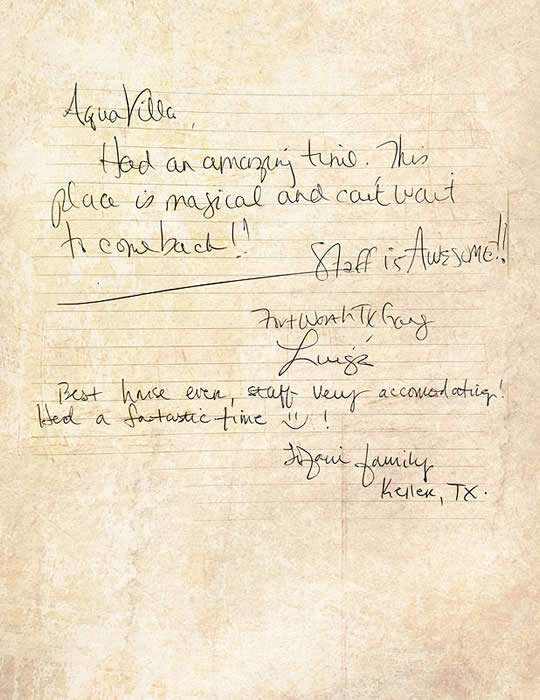 AquaVilla,
Had an amazing time. This
place is magical and can't wait
to come back!!
Staff is AWESOME!!
Fort Worth TX Gang
Luigi
Best house ever, staff very accomodating!
Had a fantastic time ☺ !
family
Keller, TX.